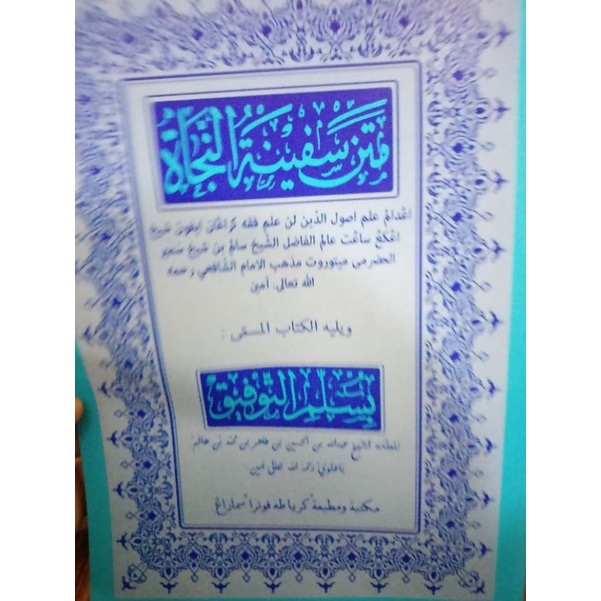 متن سفينة النجاة
اغدالم علم اصول الدين لن علم فقه كراغان ايفون شيخ
اڠكڠ ساڠت عالم الفاضل الشيخ سالم بن شيخ سمير
الحضرمى مينوروت مذهب الامام الشافعي رحمه
الله تعالى. آمين
ويليه الكتاب المسمى :
بسلم التوفيق
للعلامة الشيخ عبدالله بن الحسين بن طاهر بن محمد بن هاشم
باعلوي رحمه الله تعالى آمين
مكتبة ومطبعة كرياطه فوترا سماراڠ